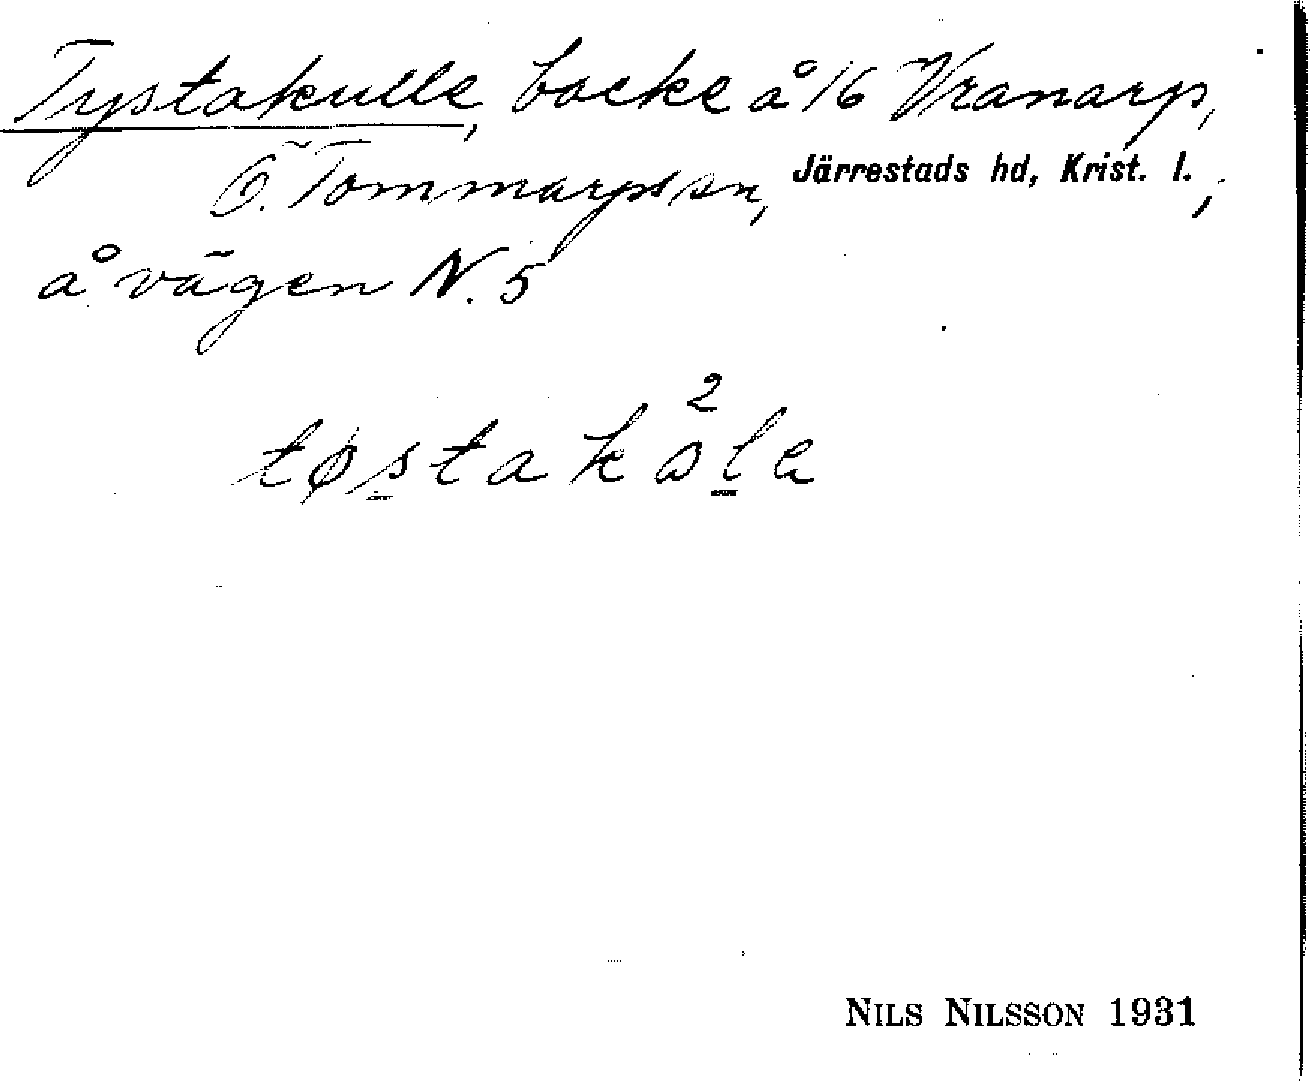 Tystakulle, backe å 16 Vranarp,
Ö. Tommarps sn, Järrestads hd, Krist. l.;
å vägen N. 5
2
tøstakola
NILS NILSSON 1931